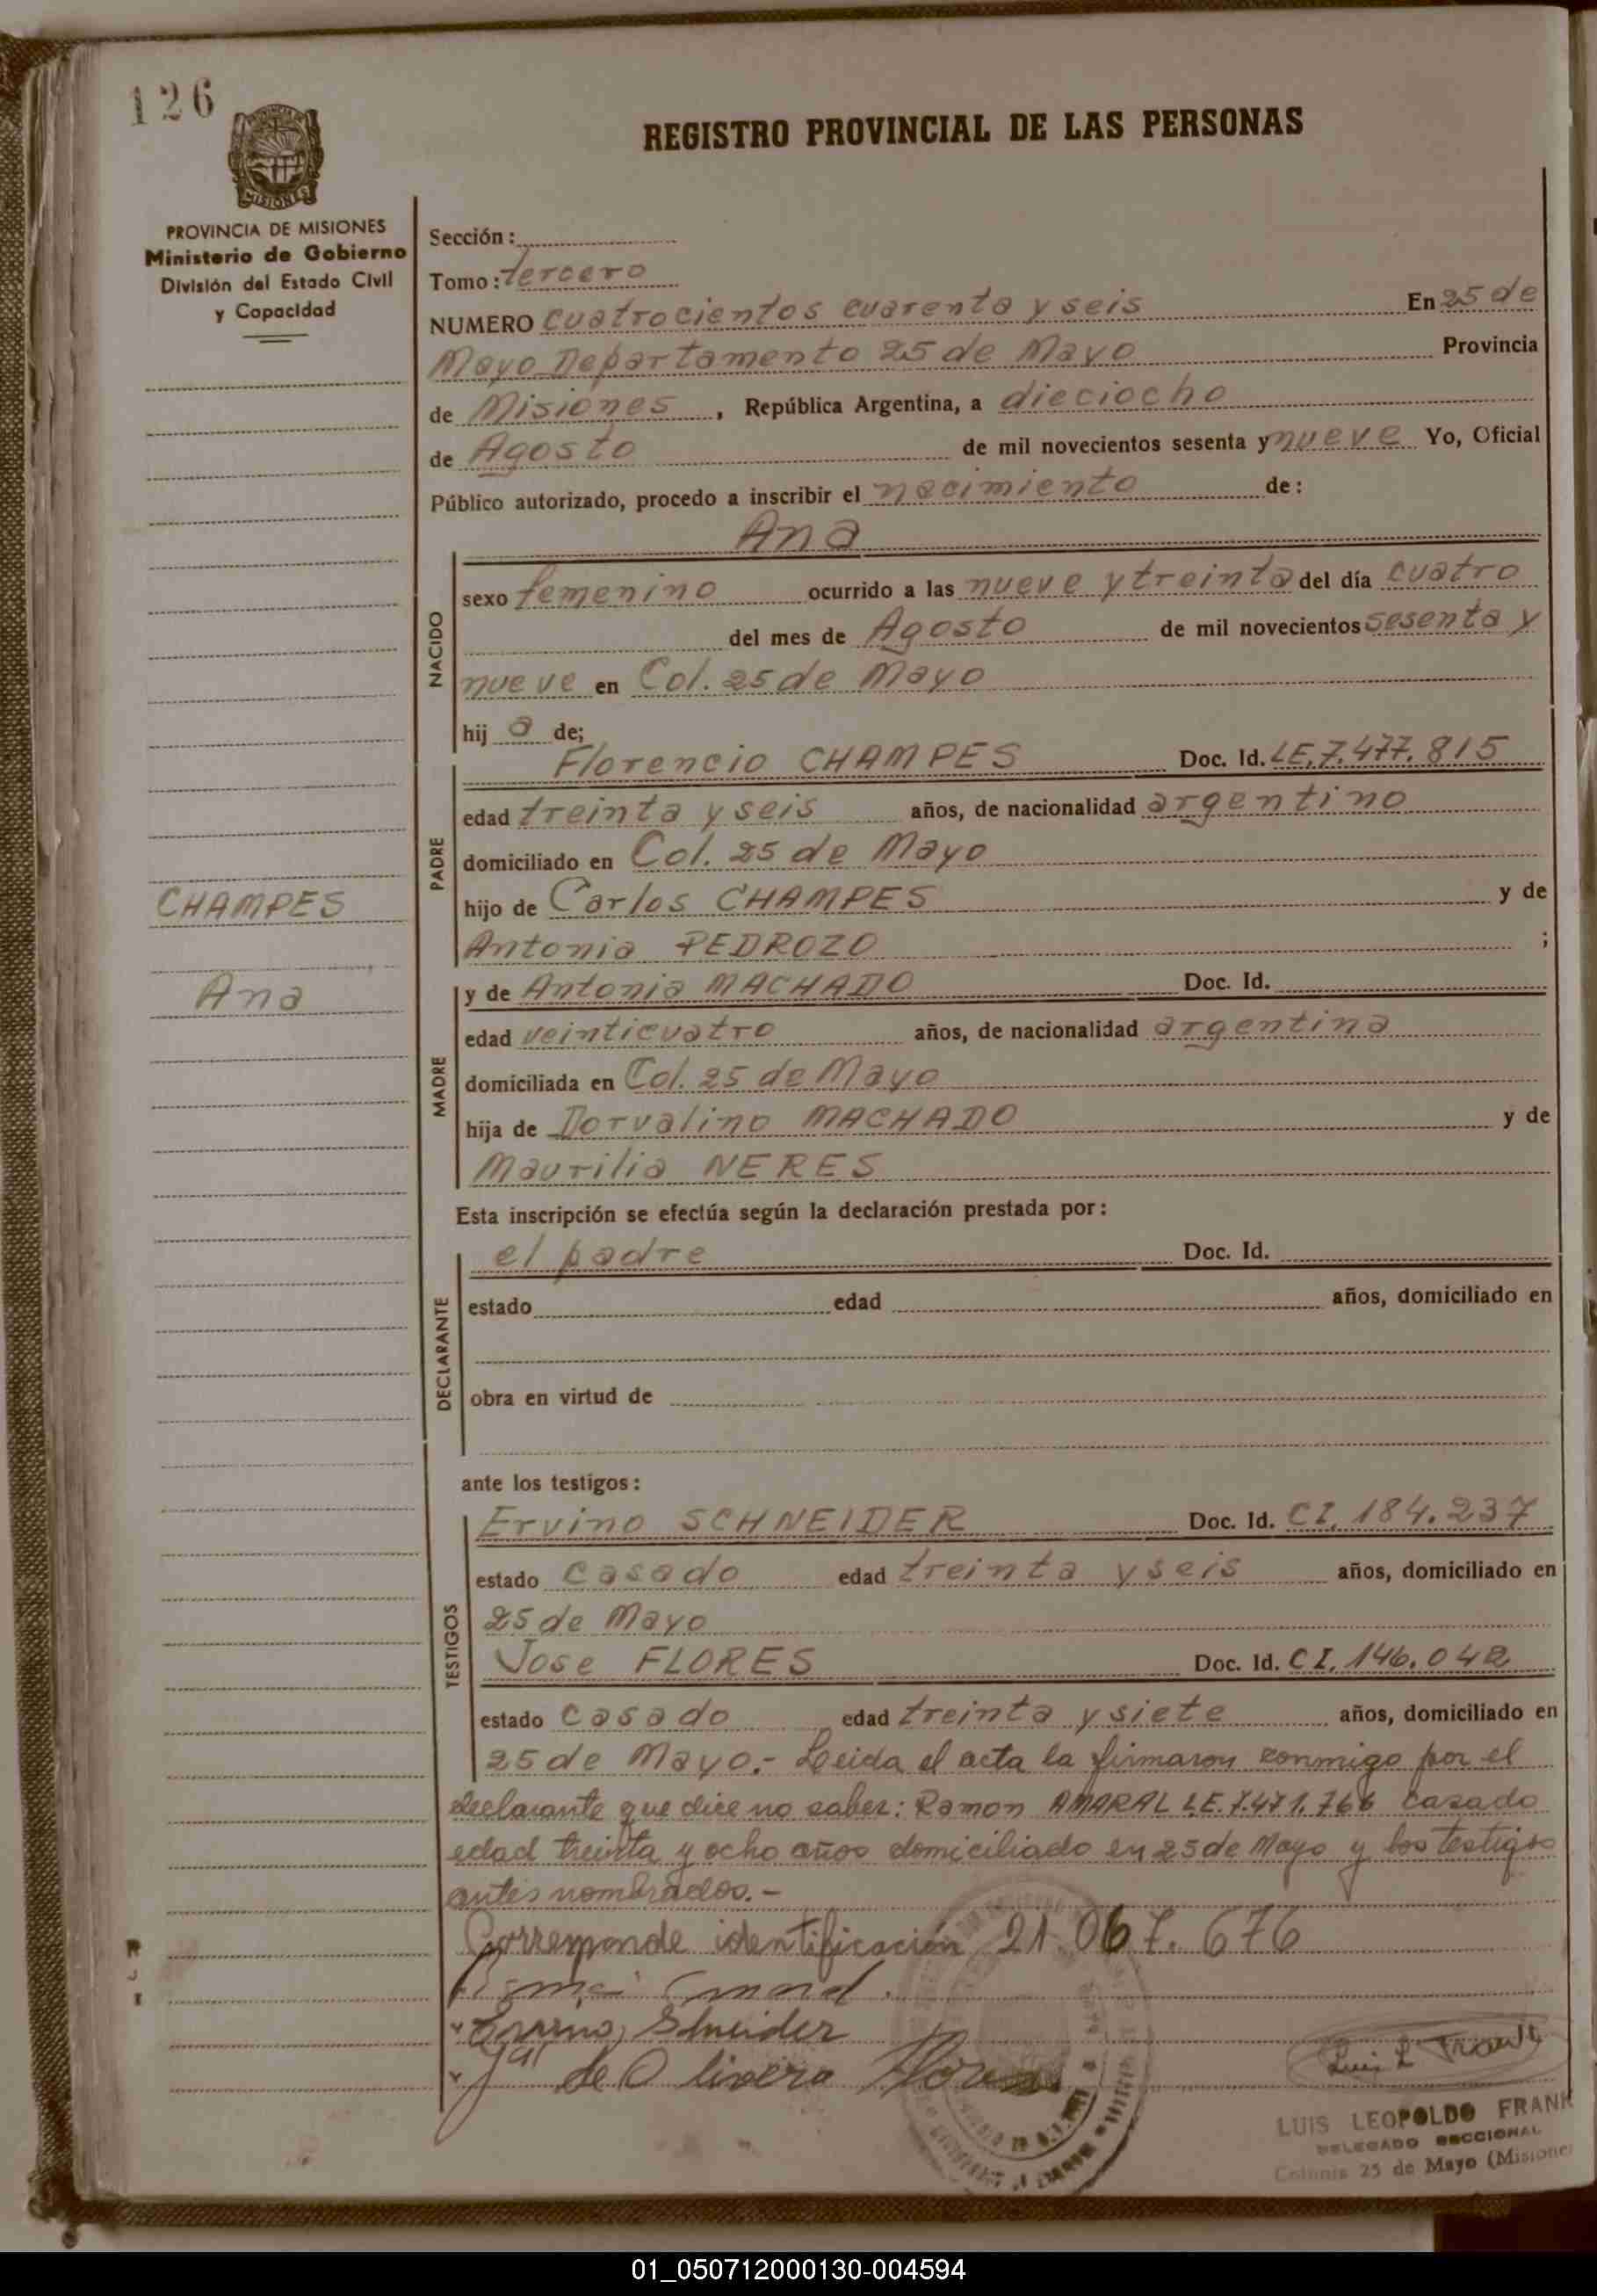 126
REGISTRO PROVINCIAL DE LAS PERSONAS
MISIONES
PROVINCIA DE MISIONES
Ministerio de Gobierno
División del Estado Civil
y Capacidad
Sección:
Tomo: tercero
NUMERO cuatrocientos cuarenta y seis En 25 de
Mayo Departamento 25 de Mayo Provincia
de Misiones, República Argentina, a dieciocho
de Agosto de mil novecientos sesenta y nueve Yo, Oficial
Público autorizado, procedo a inscribir el nacimiento de:
Ana
NACIDO
sexo femenino ocurrido a las nueve y treinta del día cuatro
del mes de Agosto de mil novecientos sesenta y
nueve en Col. 25 de Mayo
hij a de;
Florencio CHAMPES Doc. Id. LE. 7.477.815
PADRE
edad treinta y seis años, de nacionalidad argentino
domiciliado en Col. 25 de Mayo
hijo de Carlos CHAMPES y de
Antonia PEDROZO ;
CHAMPES
Ana
y de Antonia MACHADO Doc. Id.
MADRE
edad veinticuatro años, de nacionalidad argentina
domiciliada en Col. 25 de Mayo
hija de Dorvalino MACHADO y de
Maurilia NERES
Esta inscripción se efectúa según la declaración prestada por:
el padre Doc. Id.
DECLARANTE
estado edad años, domiciliado en
obra en virtud de
ante los testigos:
Ervino SCHNEIDER Doc. Id. CI. 184.237
TESTIGOS
estado casado edad treinta y seis años, domiciliado en
25 de Mayo
Jose FLORES Doc. Id. CI. 146.042
estado casado edad treinta y siete años, domiciliado en
25 de Mayo.- Leida el acta la firmaron conmigo por el
declarante que dice no saber: Ramon AMARAL LE. 7.471.766 casado
edad treinta y ocho años domiciliado en 25 de Mayo y los testigos
antes nombrados.-
Corresponde identificación 21.067.676
Schneider
de Olivera Flores
Luis L Frank
LUIS LEOPOLDO FRANK
DELEGADO SECCIONAL
Colonia 25 de Mayo (Misiones
01_050712000130-004594